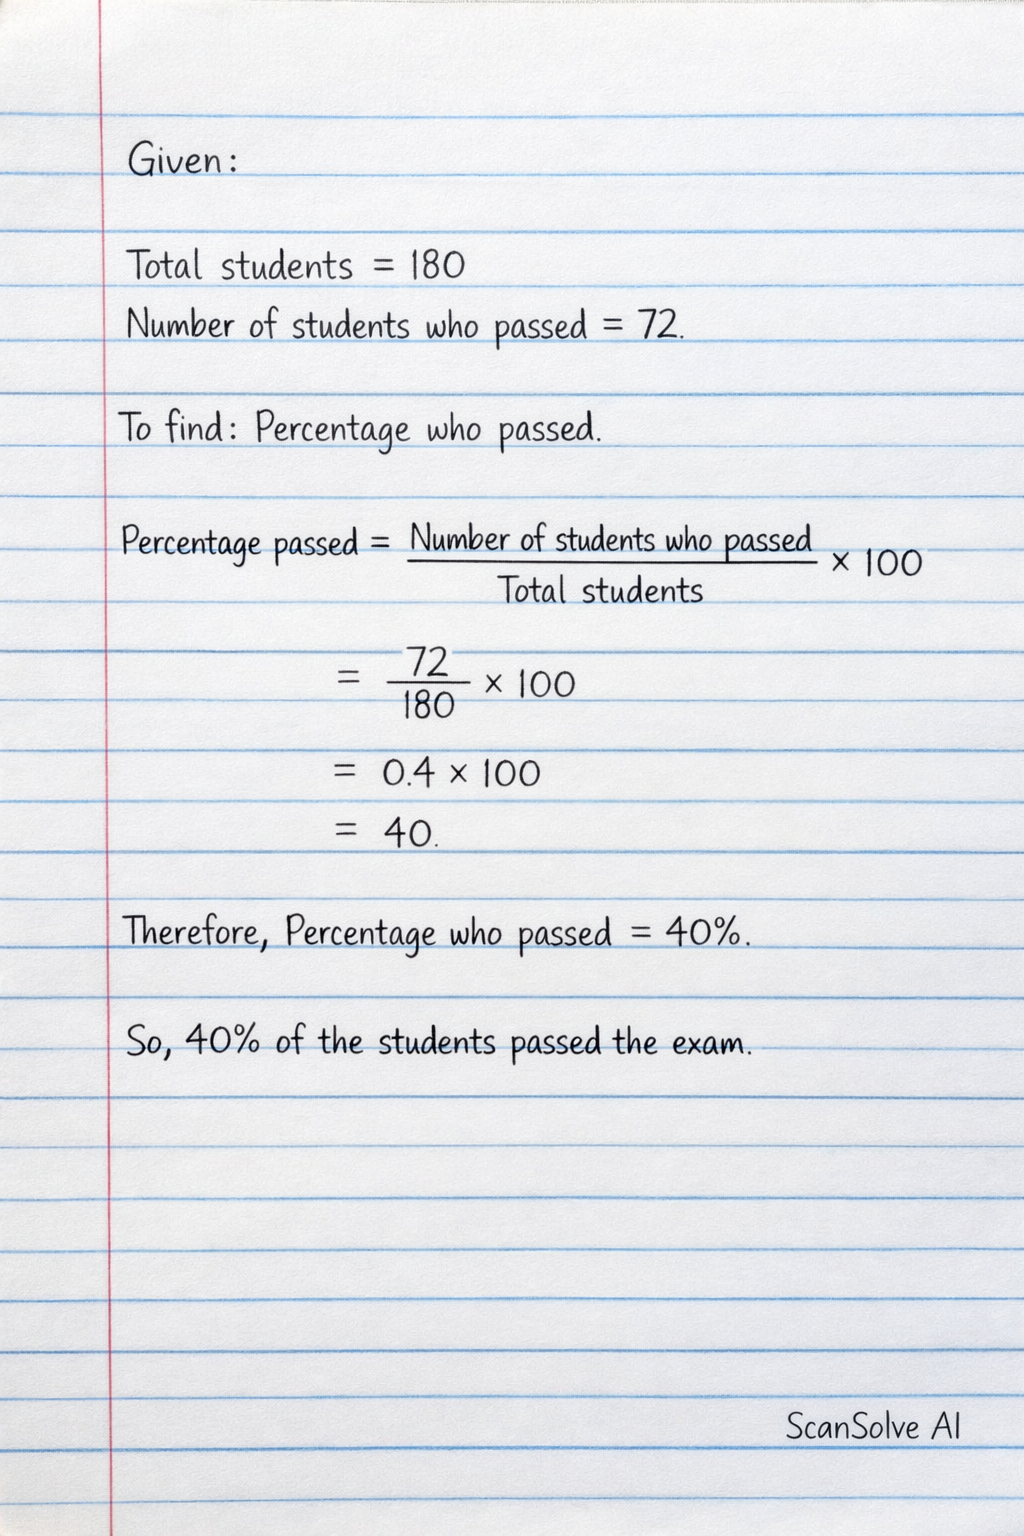 Given:
Total students = 180
Number of students who passed = 72.
To find: Percentage who passed.
Percentage passed = Number of students who passed / Total students × 100
= 72 / 180 × 100
= 0.4 × 100
= 40.
Therefore, Percentage who passed = 40%.
So, 40% of the students passed the exam.
ScanSolve AI